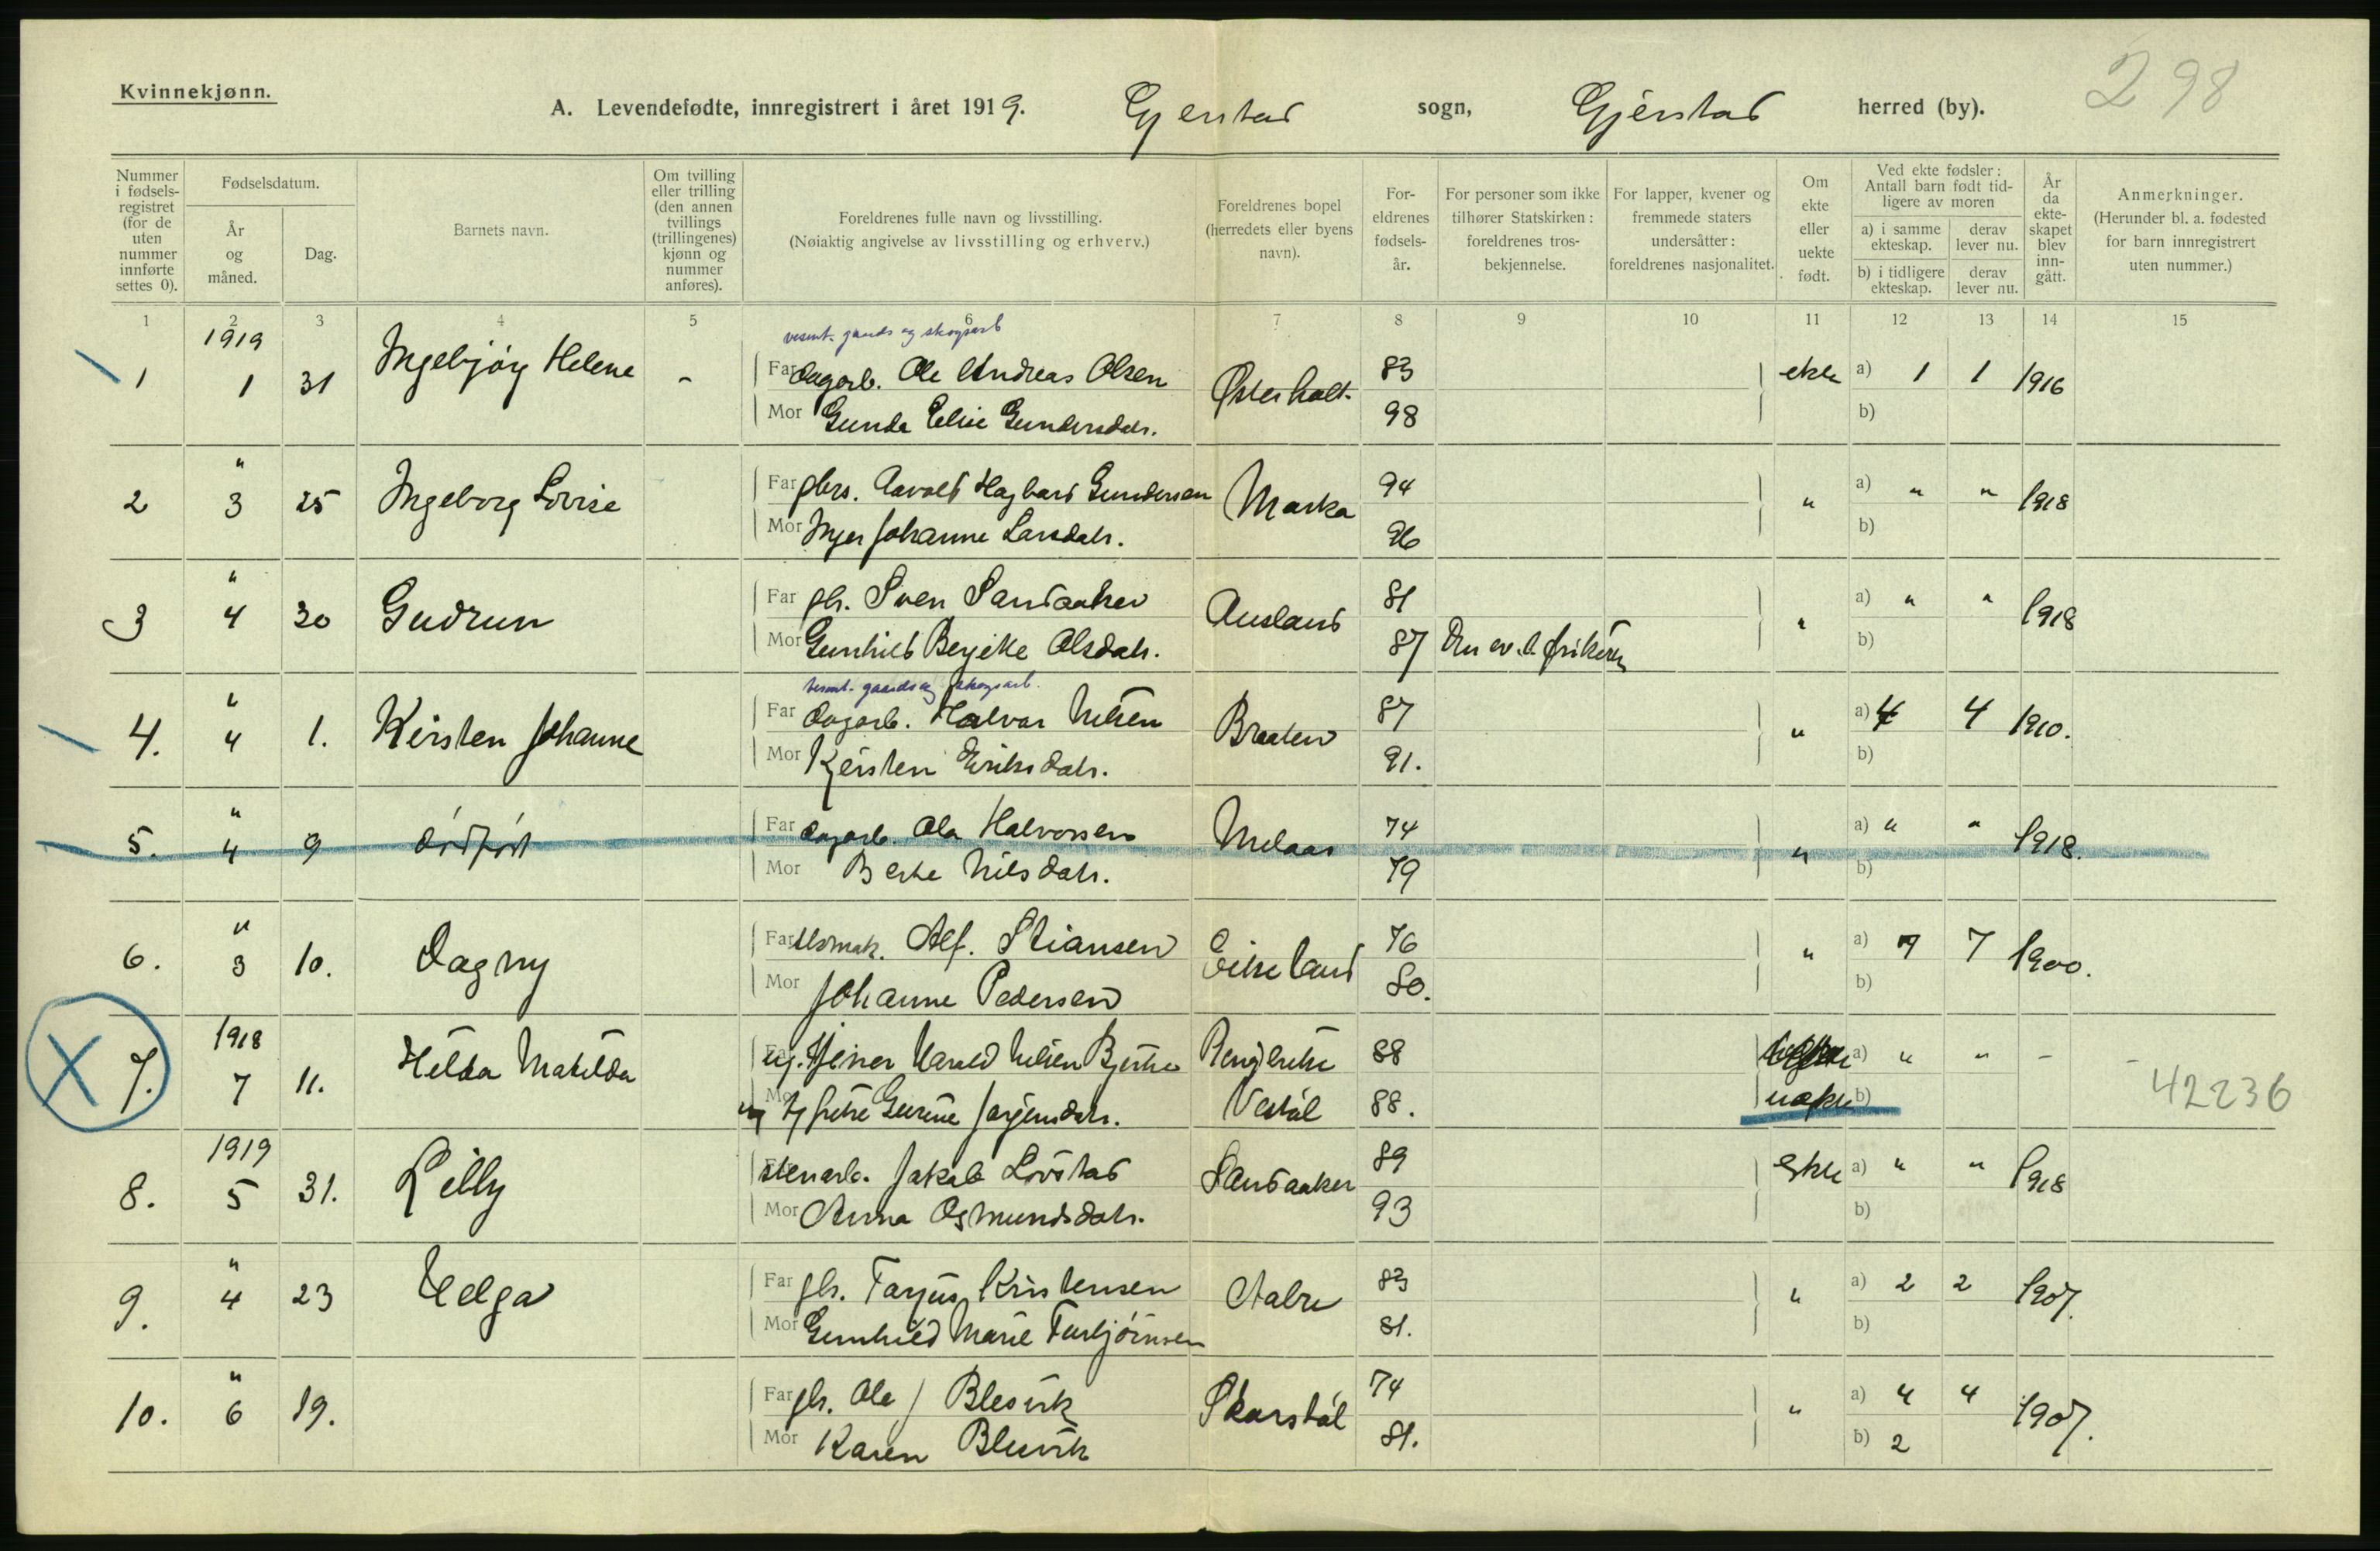 298
Kvinnekjønn.
A. Levendefødte, innregistrert i året 1919. Gjerstad sogn, Gjerstad herred (by).
Nummer i fødsels-registret (for de uten nummer innførte settes 0).
Fødselsdatum.
År og måned.
Dag.
Barnets navn.
Om tvilling eller trilling (den annen tvillings (trillingenes) kjønn og nummer anføres).
Foreldrenes fulle navn og livsstilling.
(Nøiaktig angivelse av livsstilling og erhverv.)
Foreldrenes bopel (herredets eller byens navn).
For-eldrenes fødsels-år.
For personer som ikke tilhører Statskirken: foreldrenes tros-bekjennelse.
For lapper, kvener og fremmede staters undersåtter: foreldrenes nasjonalitet.
Om ekte eller uekte født.
Ved ekte fødsler:
Antall barn født tid-ligere av moren
a) i samme ekteskap.
derav lever nu.
b) i tidligere ekteskap.
derav lever nu.
År da ekte-skapet blev inn-gått.
Anmerkninger.
(Herunder bl. a. fødested for barn innregistrert uten nummer.)
1 2 3 4 5 6 7 8 9 10 11 12 13 14 15
vesent. gaards og skogsarb
1 1919 1 31 Ingebjørg Helene - Far dagarb. Ole Andreas Olsen Østerholt. 83 ekte a) 1 1 1916
Mor Gunda Elise Gundersdatr. 98 b)
2 " 3 25 Ingeborg Lovise Far gbrs. Aavold Hagbart Gundersen Marka 94 " a) " " 1918
Mor Inger Johanne Larsdatr. 96 b)
3 " 4 30 Gudrun Far gbr. Sven Sandaaker Ausland 81 " a) " " 1918
Mor Gunhild Bergitte Olsdatr. 87 Den ev. l. frikirke b)
vesent. gaards og skogsarb.
4. " 4 1. Kirsten Johanne Far dagarb. Halvor Nilsen Braaten 87 " a) 4 4 1910.
Mor Kjersten Eriksdatr. 91. b)
5. " 4 9 dødfødt Far dagarb. Ola Halvorsen Melaas 74 " a) " " 1918.
Mor Berte Nilsdatr. 79 b)
6. " 3 10. Dagny Far Alf. Stiansen Eikeland 76 " a) 7 7 1900.
Mor Johanne Pedersen 80. b)
X 7. 1918 7 11. Helda Matilda ug. Harald Nilsen 88 a) " " - -
ug Gurine Jørgensdatr. Vestøl 88. uekte b) 42236
8. 1919 5 31. Lilly stenarb. Jakob Lovstad Sandaaker 89 Ekte a) " " 1918
Mor Anna Osmundsdatr. 93 b)
9. " 4 23 Helga Far gbr. Tarjus Kristensen Aabre 83 " a) 2 2 1907.
Mor Gunhild Marie Torbjørnsen 81. b)
10. " 6 19. Far gbr. Ole J Blesvik Skorstøl 74 " a) 4 4 1907.
Mor Karen Blesvik 81. b) 2